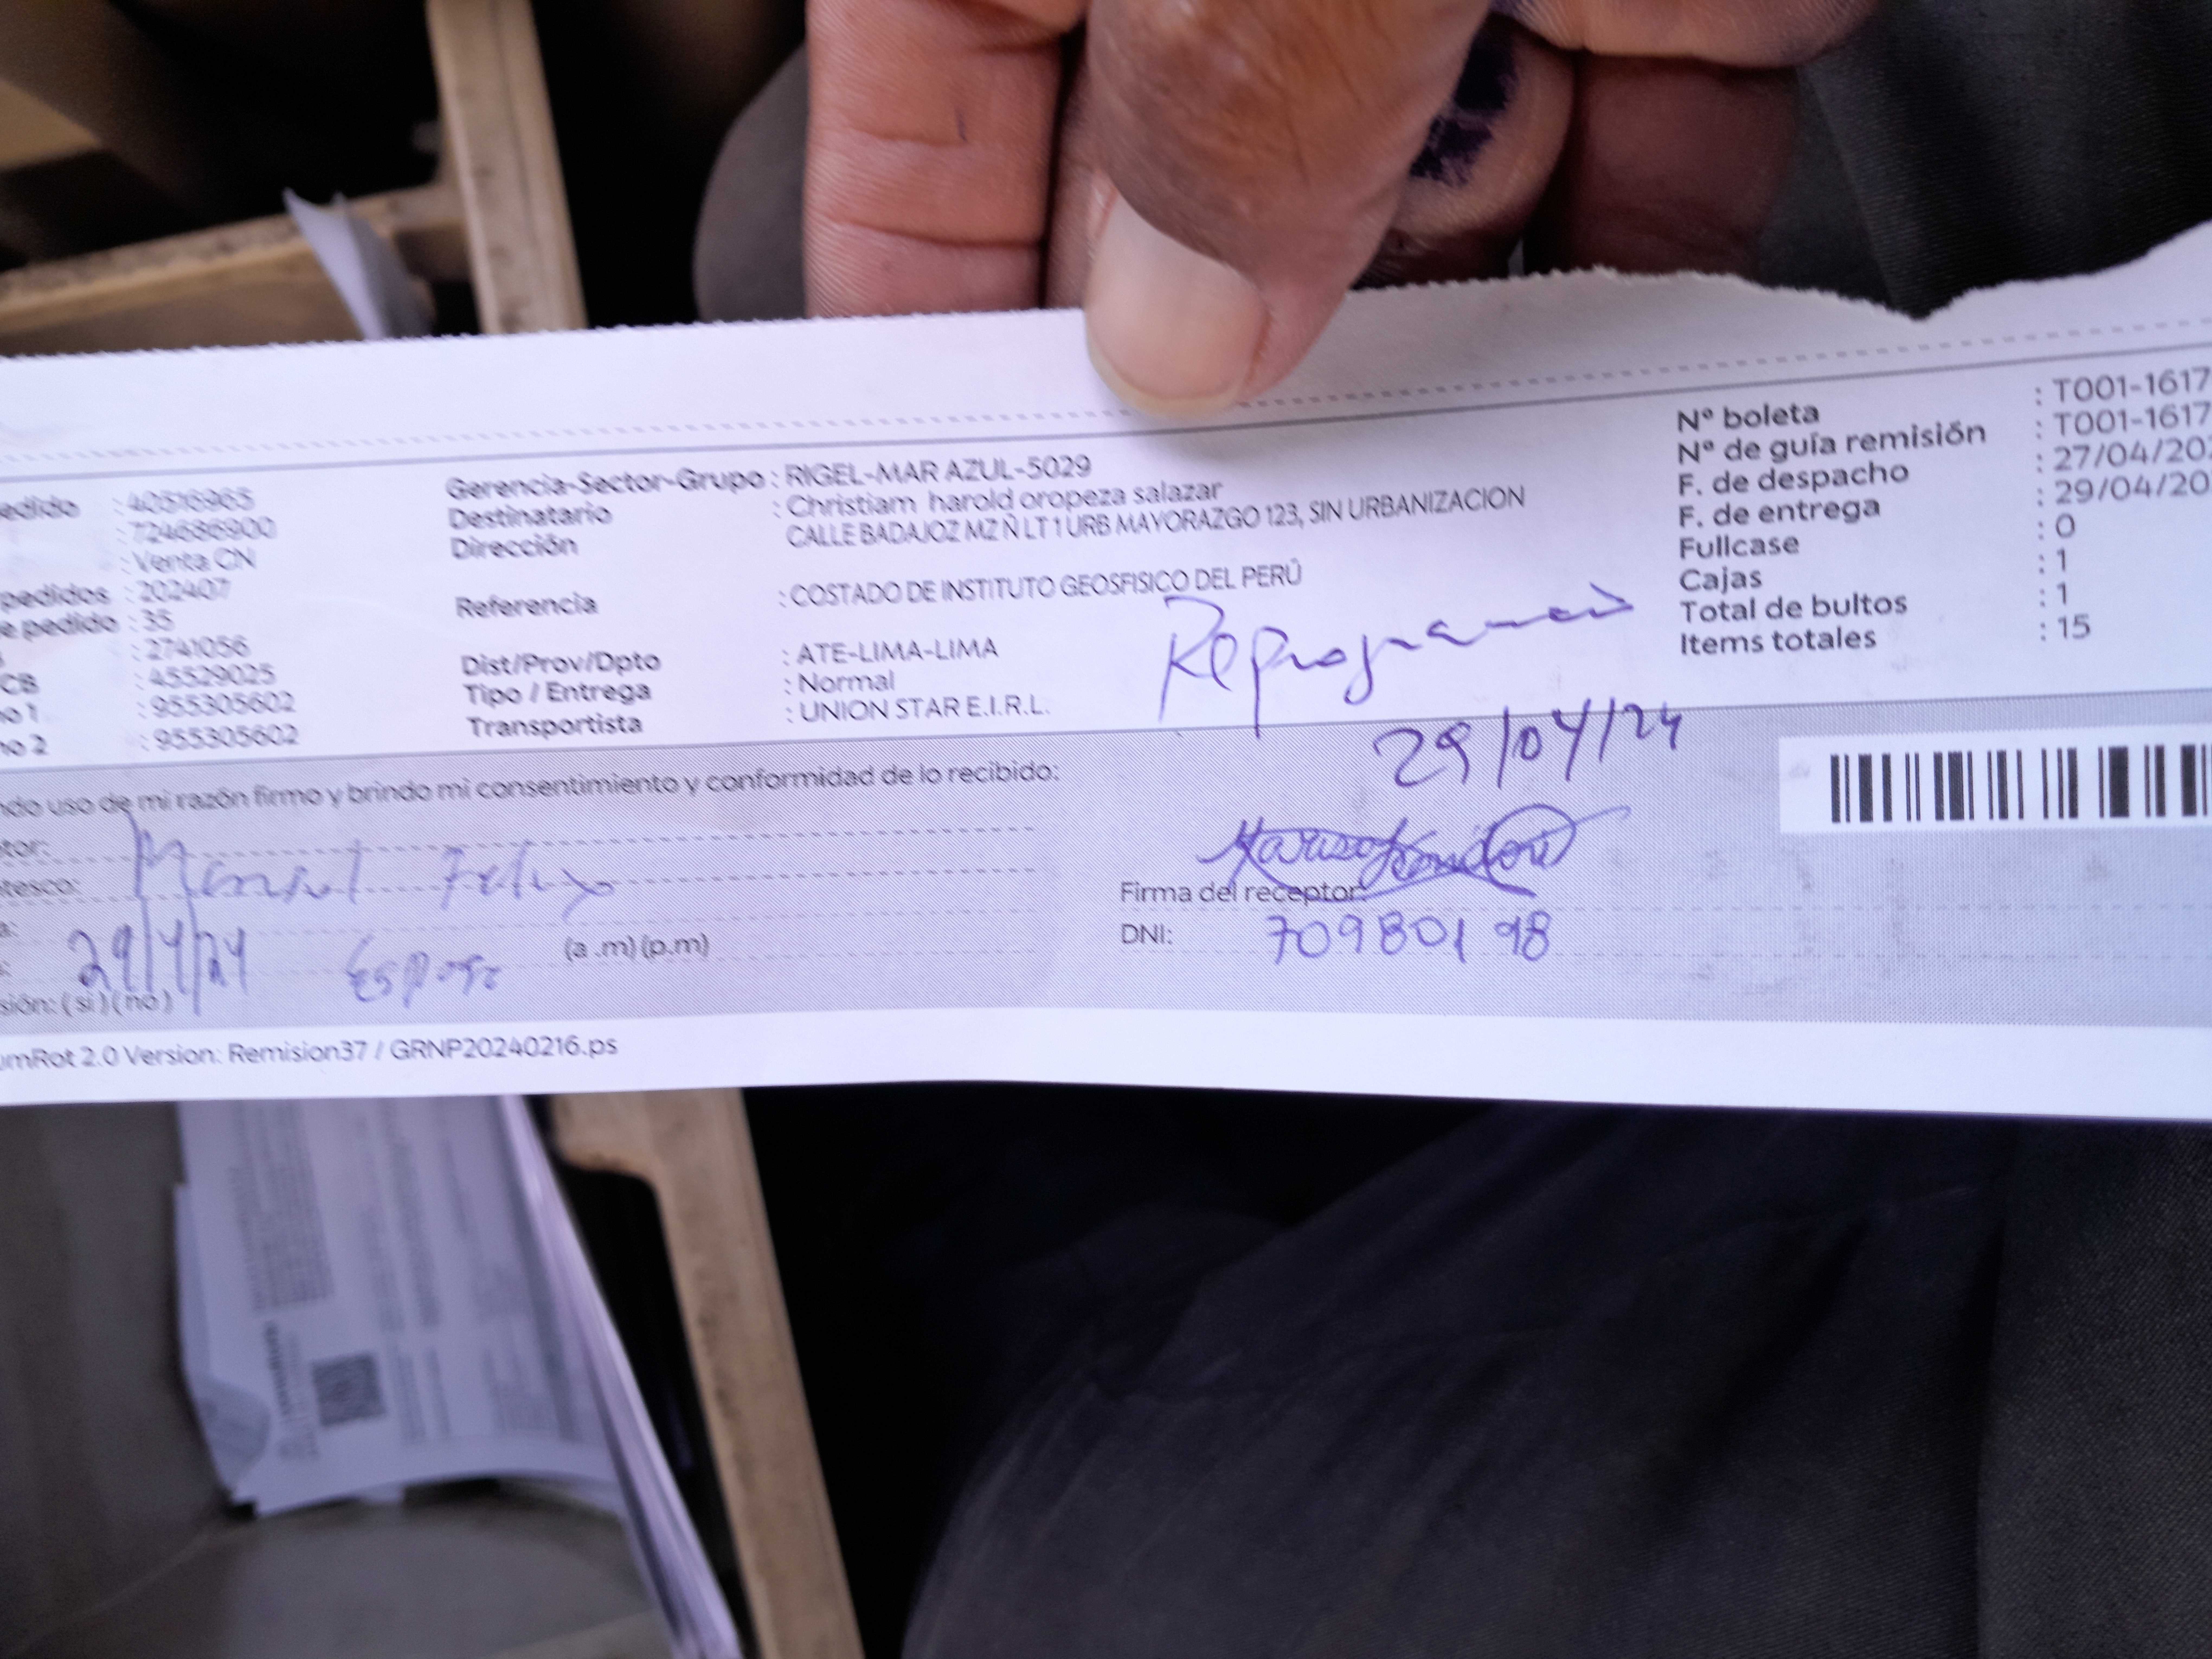 edido : 40516965
: 724686900
: Venta CN
pedidos : 202407
e pedido : 35
: 2741056
CB : 45529025
no 1 : 955305602
no 2 : 955305602
Gerencia-Sector-Grupo : RIGEL-MAR AZUL-5029
Destinatario : Christiam harold oropeza salazar
Dirección CALLE BADAJOZ MZ Ñ LT 1 URB MAYORAZGO 123, SIN URBANIZACION
Referencia : COSTADO DE INSTITUTO GEOSFISICO DEL PERÚ
Dist/Prov/Dpto : ATE-LIMA-LIMA
Tipo / Entrega : Normal
Transportista : UNION STAR E.I.R.L.
Nº boleta : T001-1617
Nº de guía remisión : T001-1617
F. de despacho : 27/04/202
F. de entrega : 29/04/20
Fullcase : 0
Cajas : 1
Total de bultos : 1
Items totales : 15
29/04/24
ndo uso de mi razón firmo y brindo mi consentimiento y conformidad de lo recibido:
tor:
tesco:
a:
29/4/24 (a .m) (p.m)
sión: ( si ) ( no )
Firma del receptor:
DNI: 70980198
omRot 2.0 Version: Remision37 / GRNP20240216.ps